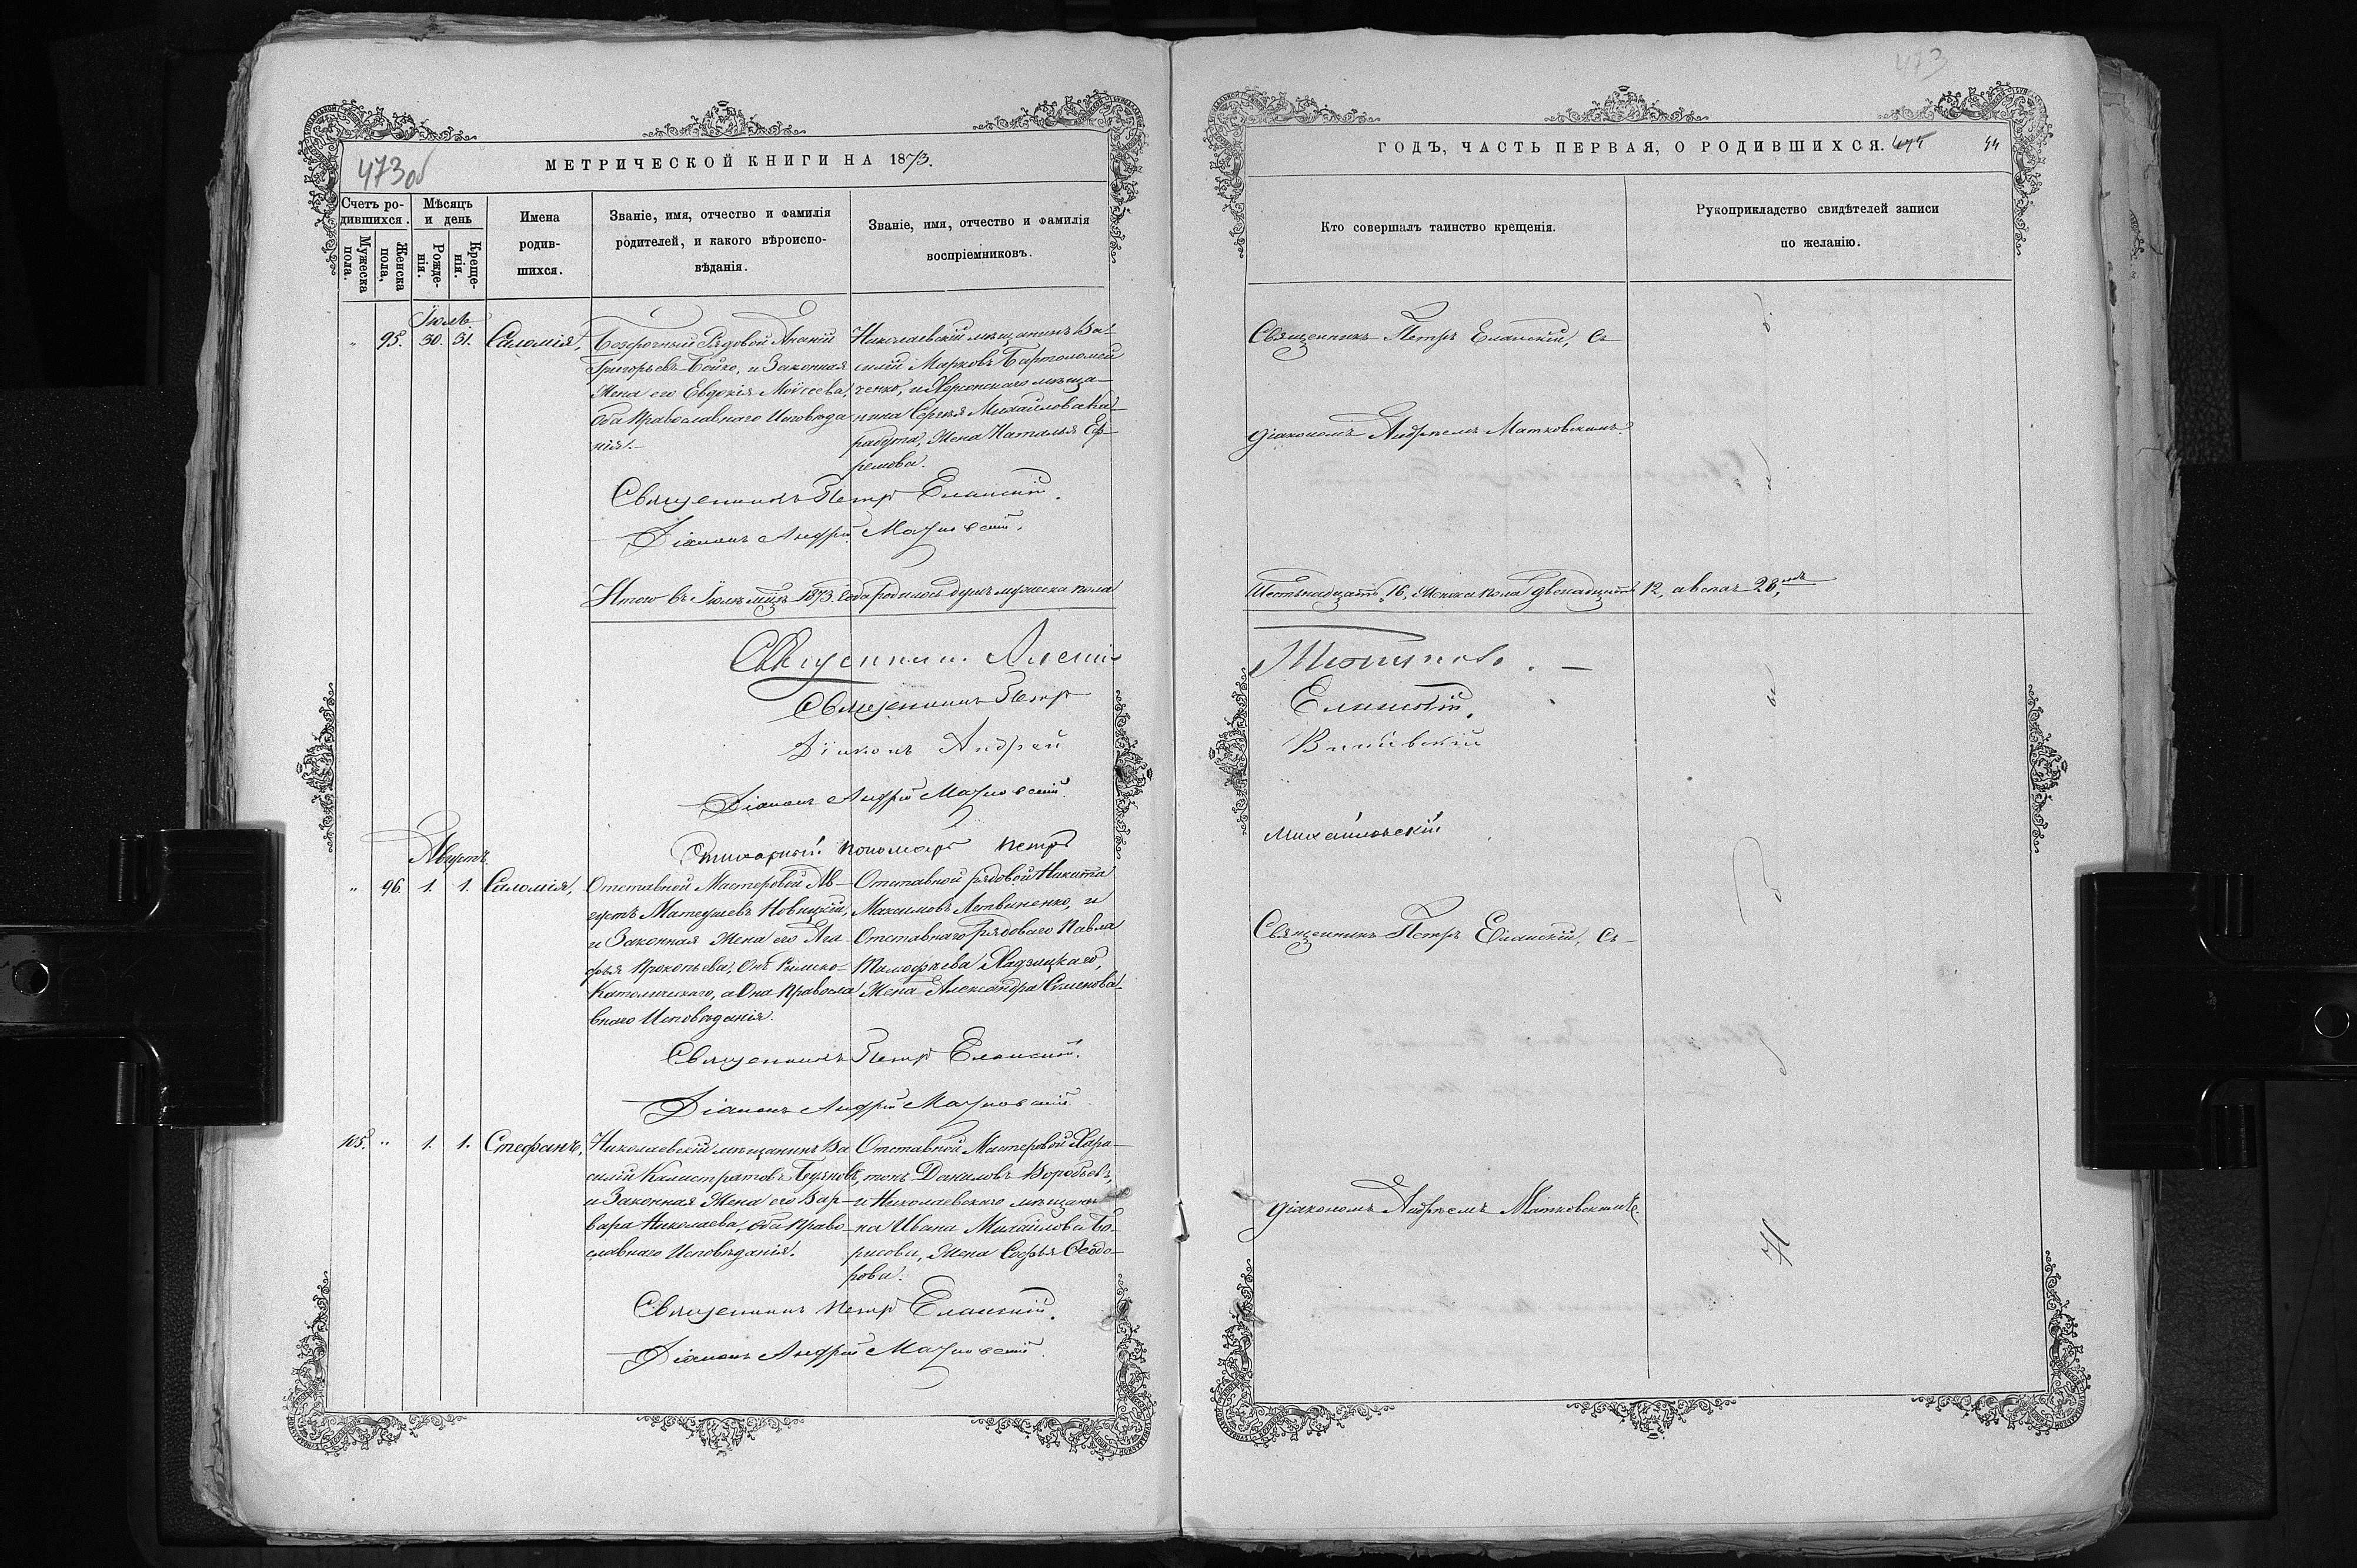 473об
МЕТРИЧЕСКОЙ КНИГИ НА 1873.
Счетъ ро-
дившихся.
Мужеска пола.
Женска пола.
Мѣсяцъ
и день
Рожде-
нія.
Креще-
нія.
Имена
родив-
шихся.
Званіе, имя, отчество и фамилія
родителей, и какого вѣроиспо-
вѣданія.
Званіе, имя, отчество и фамилія
воспріемниковъ.
Іюль
" 95. 30. 31. Саломія,
Безсрочный Рядовой Ананій
Григорьевъ Бойко, и Законная
Жена его Евдокія Моисеева,
Оба Православнаго Исповѣда
нія.
Николаевскій мѣщанинъ Ва-
силій Марковъ Бартоломей
ченко, и Херсонскаго мѣща-
нина Сергѣя Михайлова Ка-
рабута, Жена Наталья Еф-
ремова.
Священникъ Петръ Еланскій.
Діаконъ Андрей Матковскій.
Итого въ Іюлѣ мцѣ 1873 года родилось душъ мужеска пола
Священникъ Алексій
Священникъ Петръ
Діаконъ Андрей
Діаконъ Андрей Матковскій.
Стихарный пономарь Петръ
Августъ.
" 96. 1. 1. Саломія,
Отставной Мастеровой Ав-
густъ Матеушевъ Новицкій,
и Законная Жена его Ага-
фья Прокопьева, Онъ Римско-
Католическаго, а Она Правосла
внаго Исповѣданія.
Отставной рядовой Никита
Максимовъ Литвиненко, и
Отставнаго рядоваго Павла
Тимофѣева Хадзицкаго,
Жена Александра Семенова.
Священникъ Петръ Еланскій.
Діаконъ Андрей Матковскій.
105. " 1. 1. Стефанъ,
Николаевскій мѣщанинъ Ва
силій Калистратовъ Буяновъ,
и Законная Жена его Вар-
вара Николаева, оба Право-
славнаго Исповѣданія.
Отставной Мастеровой Хари-
тонъ Даниловъ Воробьевъ,
и Николаевскаго мѣщани-
на Ивана Михайлова Бо-
рисова, Жена Софья Ѳеодо-
рова.
Священникъ Петръ Еланскій.
Діаконъ Андрей Матковскій.
473
ГОДЪ, ЧАСТЬ ПЕРВАЯ, О РОДИВШИХСЯ.
44
Кто совершалъ таинство крещенія.
Рукоприкладство свидѣтелей записи
по желанію.
Священникъ Петръ Еланскій, Съ
діакономъ Андреемъ Матковскимъ.
Шестьнадцать 16, Женска пола двенадцать 12, а всѣхъ 28,
Еланскій,
Михайловскій
Священникъ Петръ Еланскій, Съ
діакономъ Андреемъ Матковскимъ.